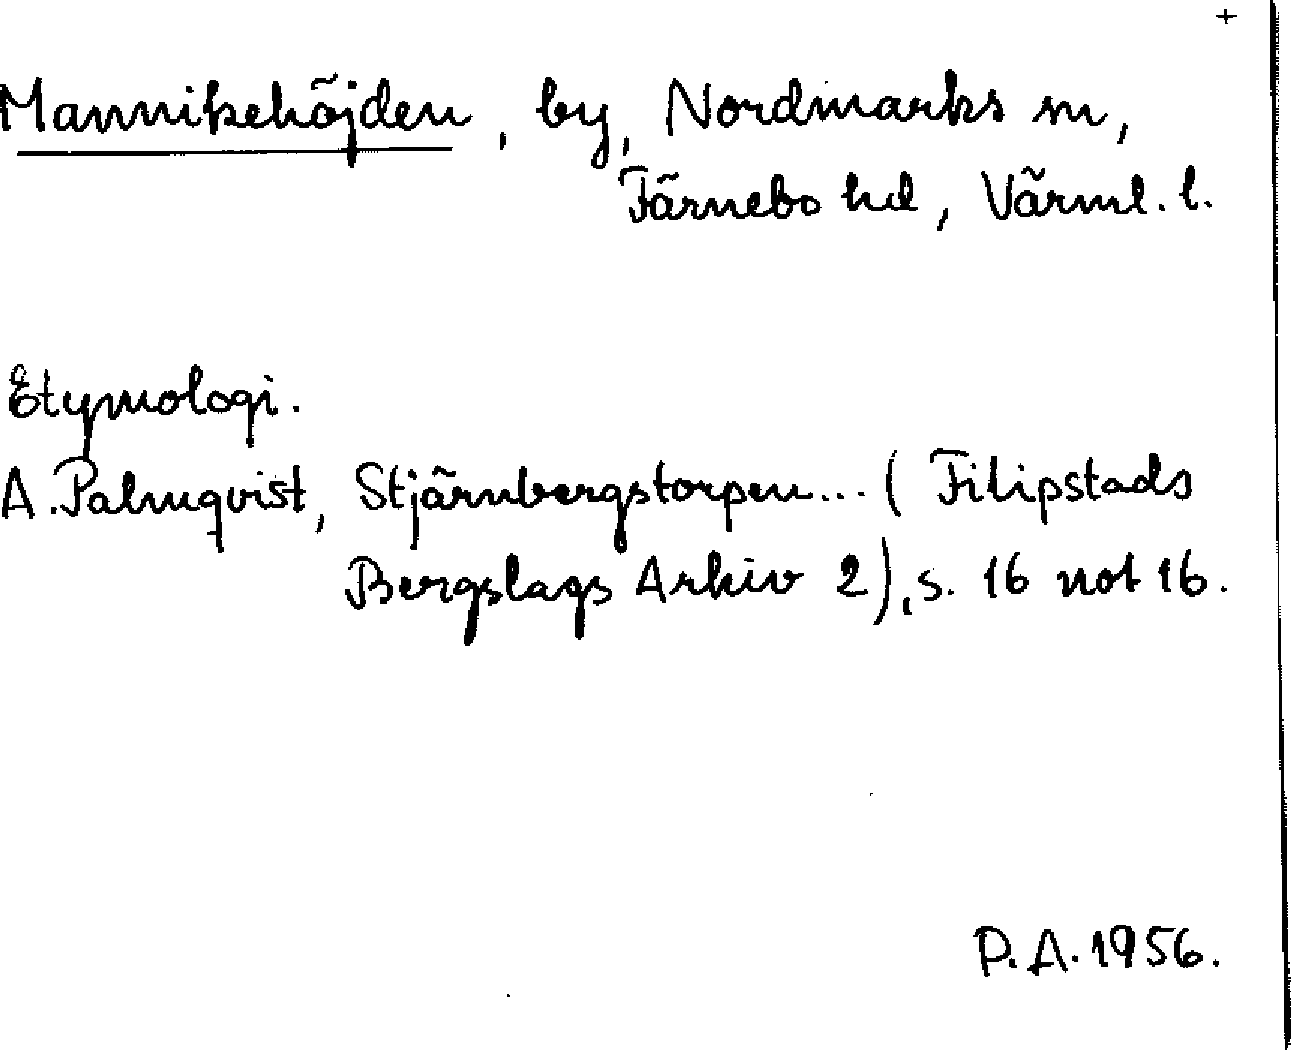 +
Mannikehöjden, by, Nordmarks sn,
Färnebo hd, Värml. l.
Etymologi.
A. Palmqvist, Stjärnbergstorpen... (Filipstads
Bergslags Arkiv 2), s. 16 not 16.
P. A. 1956.